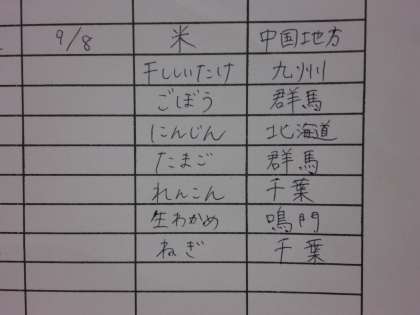 9/8 米 中国地方
干ししいたけ 九州
ごぼう 群馬
にんじん 北海道
たまご 群馬
れんこん 千葉
生わかめ 鳴門
ねぎ 千葉